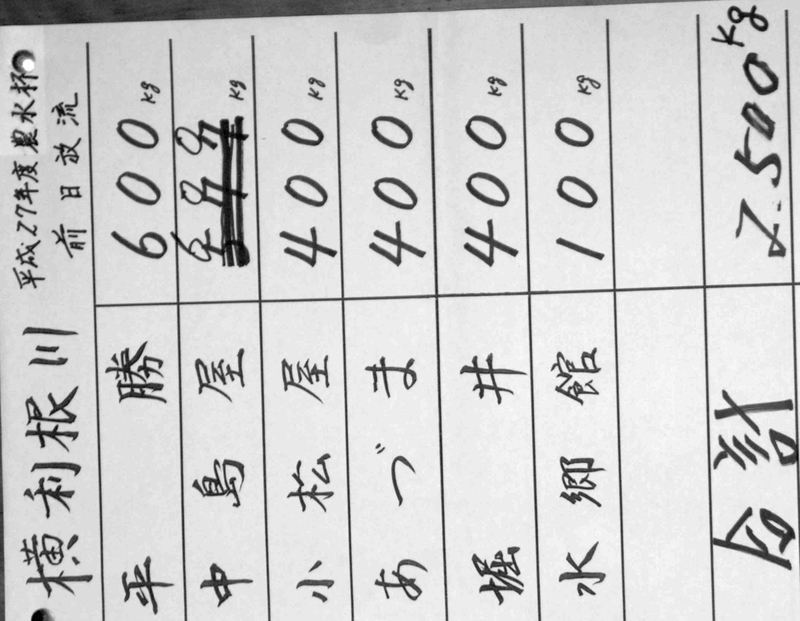 横利根川 平成27年度 農水杯
前日放流
平勝 600kg
中島屋 600kg
小松屋 400kg
あづま 400kg
堀井 400kg
水郷館 100kg
合計 2.500kg